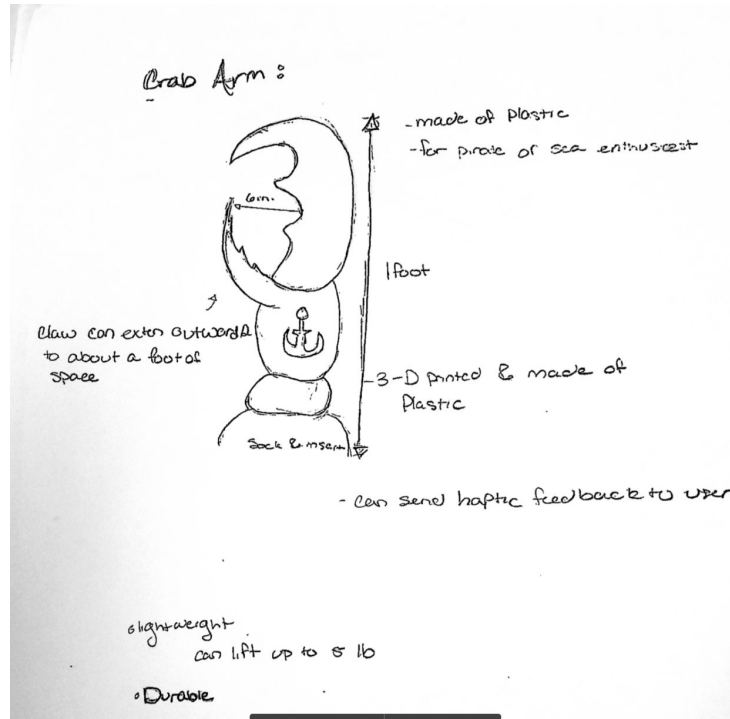 Crab Arm:
- made of Plastic
- for pirate or sea enthuscest
6in.
1 foot
Claw can exten outward
to about a foot of
space
- 3-D printed & made of
Plastic
Sock &
- can send haptic feedback to user
lightweight
can lift up to 5 lb
• Durable